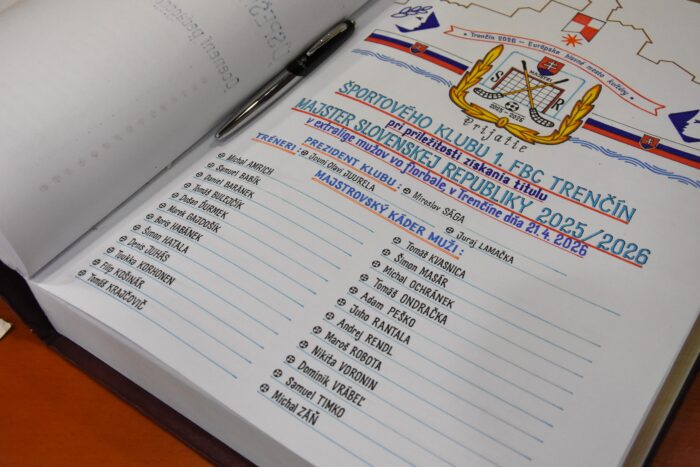 Trenčín 2026 – Európske hlavné mesto kultúry
MAJSTRI
S R
2025 2026
Prijatie
ŠPORTOVÉHO KLUBU 1. FBC TRENČÍN
pri príležitosti získania titulu
MAJSTER SLOVENSKEJ REPUBLIKY 2025/2026
v extralige mužov vo florbale, v Trenčíne dňa 21.4. 2026
PREZIDENT KLUBU : Miroslav SÁGA
TRÉNERI : Jouni Olavi JUURELA
Juraj LAMAČKA
MAJSTROVSKÝ KÁDER MUŽI :
Michal AMRICH
Samuel BABÍK
Daniel BARÁNEK
Tomáš BULEJČÍK
Dušan ĎURMEK
Marek GAJDOŠÍK
Boris HABÁNEK
Šimon HATALA
Denis JUHÁS
Tuukka KORHONEN
Filip KOŠINÁR
Tomáš KRAJČOVIČ
Tomáš KVASNICA
Šimon MASÁR
Michal OCHRÁNEK
Tomáš ONDRAČKA
Adam PEŠKO
Juho RANTALA
Andrej RENDL
Maroš ROBOTA
Nikita VORONIN
Dominik VRÁBEĽ
Samuel TIMKO
Michal ZÁŇ